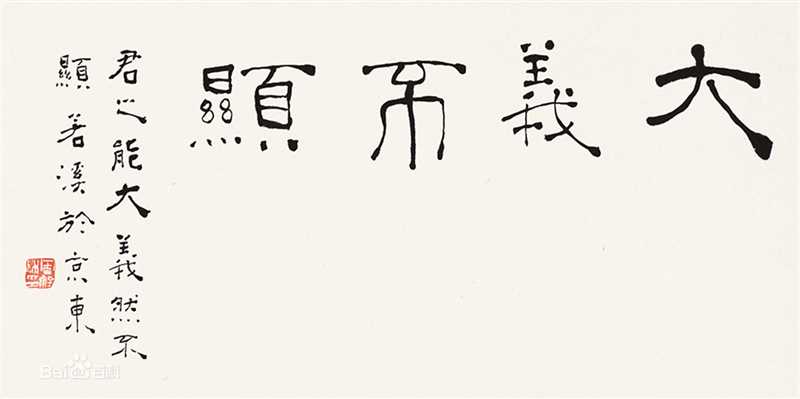 大義不顯
君之能大義然不
顯 若溪於京東
Bai百科